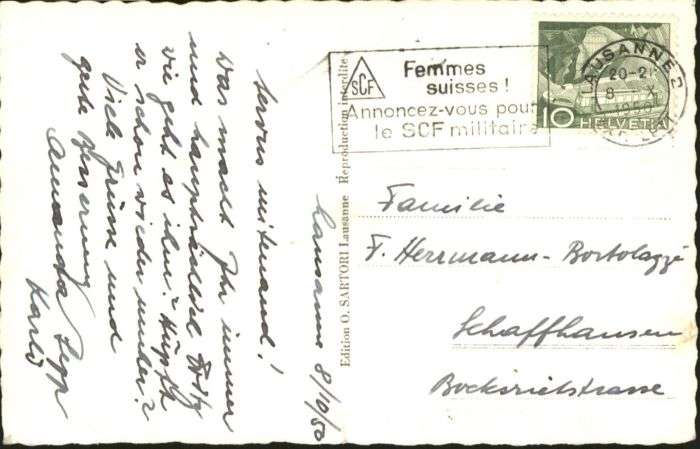 Lausanne 8/10/50
Servus mitenand!
Was macht Ihr immer
und hauptsächlich Fritz
wie geht es ihm? Hüpft
er schon wieder umher?
Viele Grüsse und
gute Besserung
Amanda
Karli
Edition O. SARTORI Lausanne Reproduction interdite
SCF
Femmes
suisses!
Annoncez-vous pour
le SCF militaire
LAUSANNE 2
20-21
8 X
1950
10 HELVETIA
Familie
F. Herrmann-Bortolazzi
Schaffhausen
Bocksrietstrasse